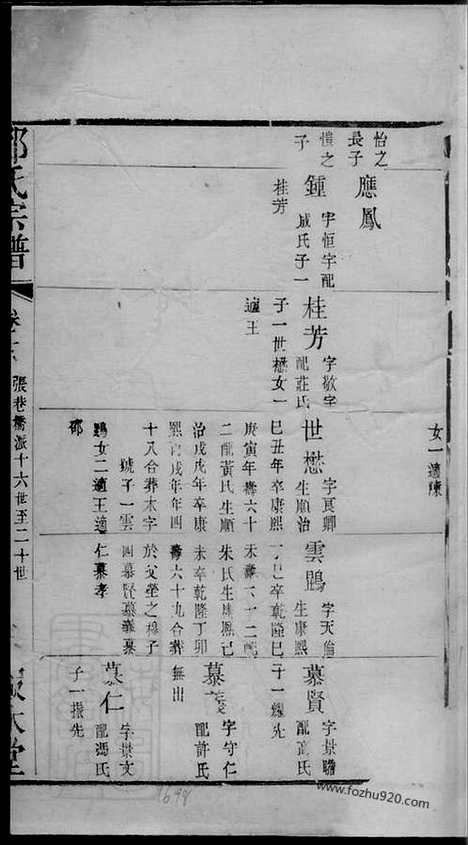 女一適陳
怡之長子
應鳳
愷之子
鍾
字恒宇配
戚氏子一
桂芳
桂芳
字敬宇
配莊氏
子一世懋女一
適王
世懋
字貞卿
生順治
己丑年卒康熙
庚寅年壽六十
二配黃氏生順
治戊戌年卒康
熙
戌年年四
十八合葬本字
號子一雲
鵾女二適王適
邵
雲鵾
字天倫
生康熙
卒乾隆
未壽
二配
朱氏生康熙己
未卒乾隆丁卯
壽六十九合葬
於父塋之穆子
四慕賢慕義慕
仁慕孝
慕賢
字景瞻
配高氏
子一耀先
慕義
字守仁
配許氏
無出
慕仁
字景文
配馮氏
子一振先
氏宗譜
張巷橋派十六世至二十世
本堂
1698
www.fozhu920.com